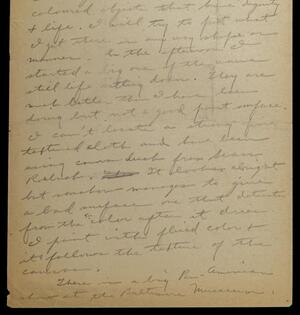 coloured objects that have dignity
& life. I will try to put what
I get there in any way shape or
manner. In the afternoon I
started a big one of the same
still life sitting down. They are
much better than I have been
doing but not a good paint surface.
I can't locate a strong
textured cloth and have been
using canvas duck from Sears
Roebuck. It looks alright
but somehow manages to give
a bad surface one that detracts
from the color after it dries
I paint with fluid color &
it follows the texture of the
canvas.
There is a big Pan-American
show at the Baltimore Museum.